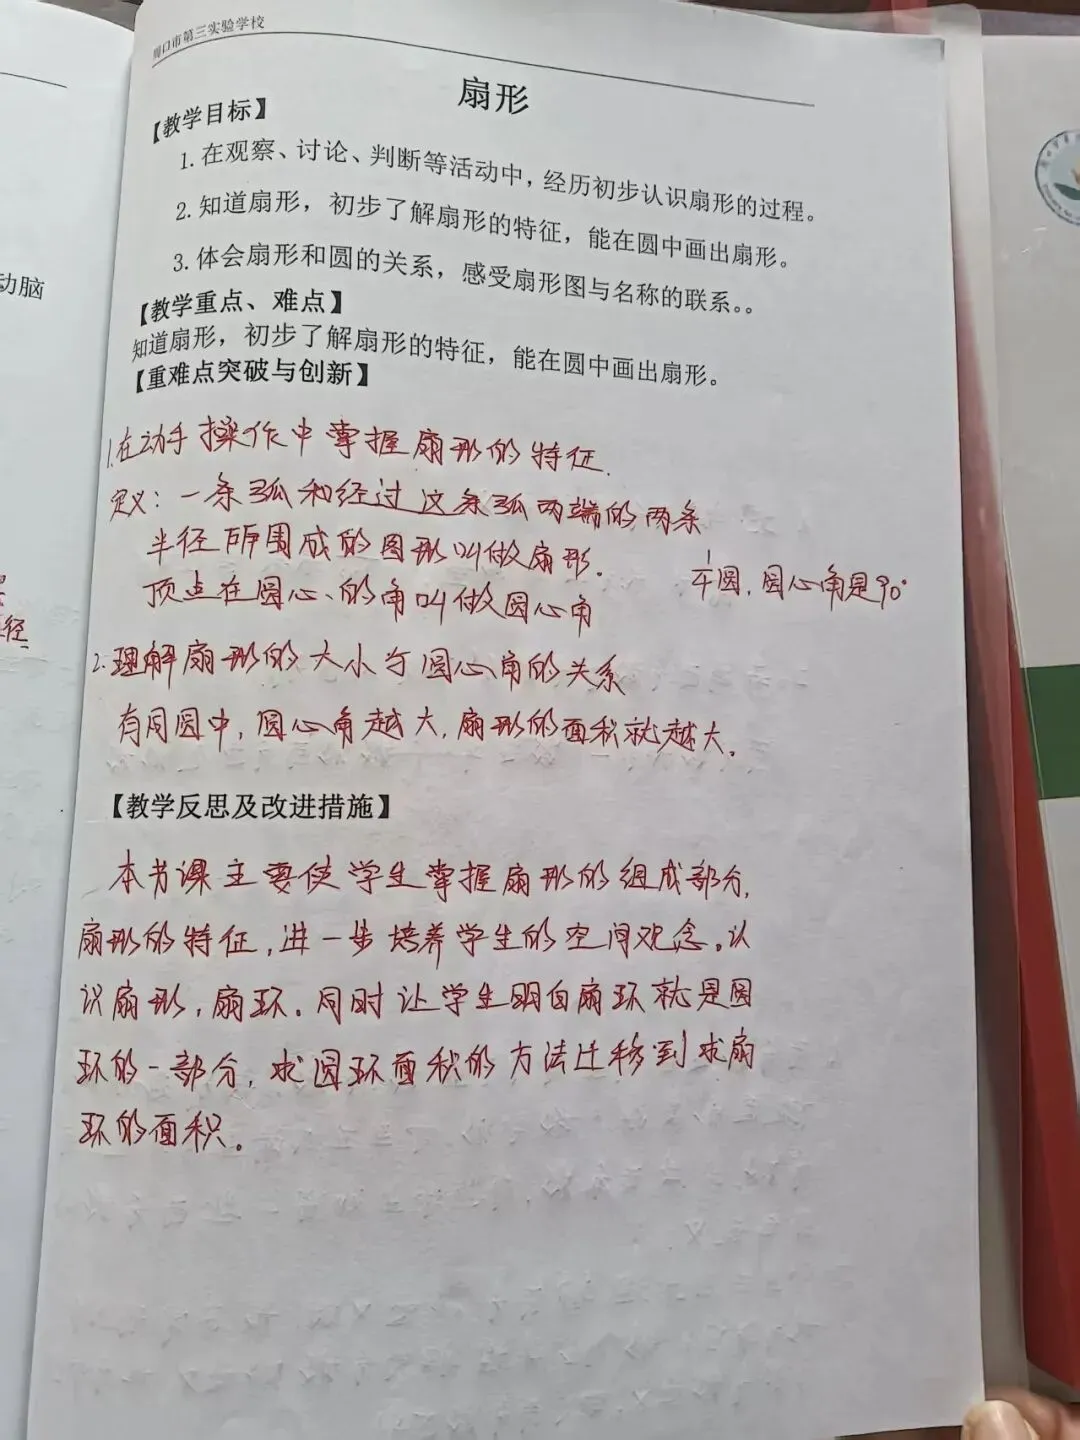 周口市第三实验学校
扇形
【教学目标】
1. 在观察、讨论、判断等活动中，经历初步认识扇形的过程。
2. 知道扇形，初步了解扇形的特征，能在圆中画出扇形。
3. 体会扇形和圆的关系，感受扇形图与名称的联系。。
【教学重点、难点】
知道扇形，初步了解扇形的特征，能在圆中画出扇形。
【重难点突破与创新】
1.在动手操作中掌握扇形的特征.
定义：一条弧和经过这条弧两端的两条
半径所围成的图形叫做扇形.
1/4圆,圆心角是90°
顶点在圆心的角叫做圆心角
2.理解扇形的大小与圆心角的关系
有同圆中,圆心角越大,扇形的面积就越大.
【教学反思及改进措施】
本节课主要使学生掌握扇形的组成部分,
扇形的特征,进一步培养学生的空间观念。认
识扇形,扇环.同时让学生明白扇环就是圆
环的一部分,求圆环面积的方法迁移到求扇
环的面积。
动脑
径